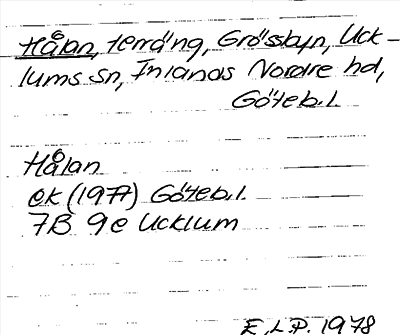 Hålan, terräng, Grössbyn, Uck-
lums sn, Inlands Nordre hd,
Göteb.l.
Hålan
ek (1977) Göteb.l.
7B 9e Ucklum
E.L.P. 1978